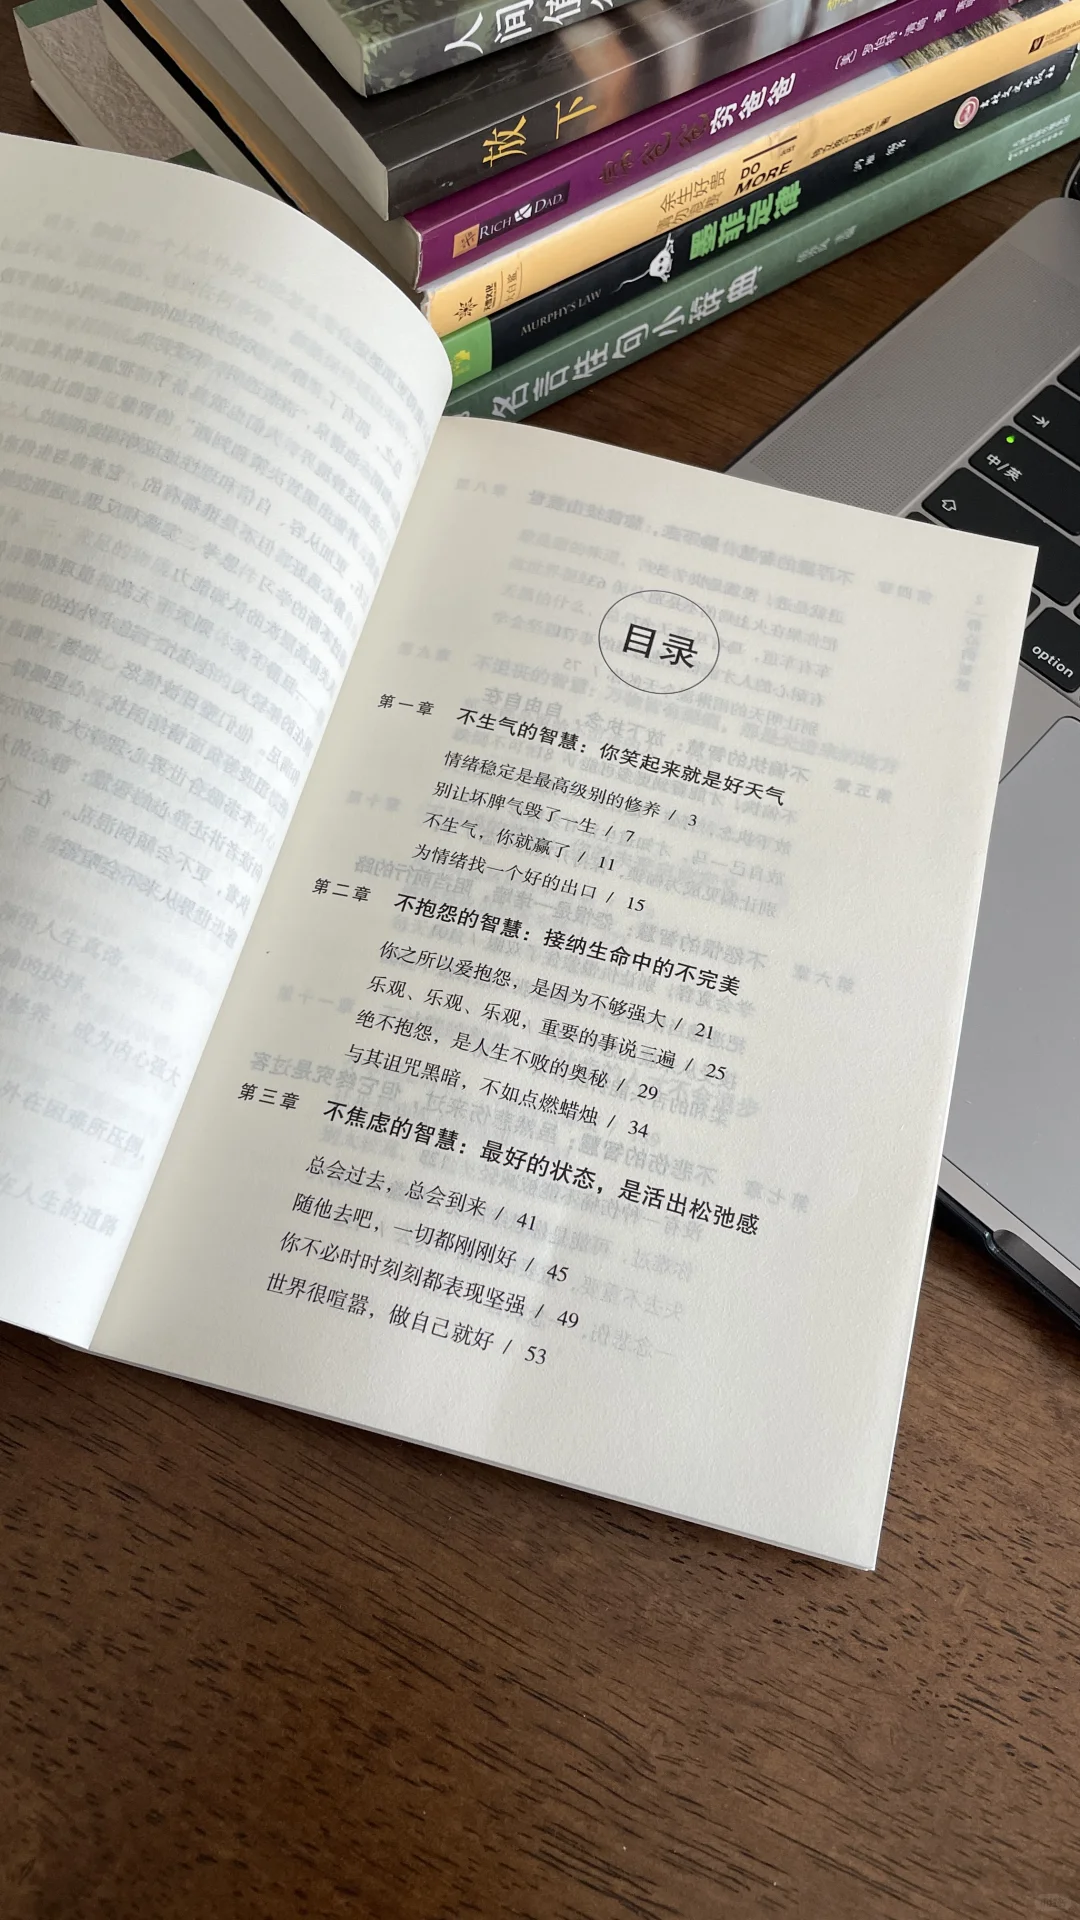 人间值
放下
富爸爸穷爸爸
RICH DAD
[美] 罗伯特·清崎 著
余生好贵
请勿浪费
DO
MORE
大白鲨
墨菲定律
MURPHY'S LAW
名言佳句小辞典
中/英
option
目录
第一章 不生气的智慧：你笑起来就是好天气
情绪稳定是最高级别的修养 / 3
别让坏脾气毁了一生 / 7
不生气，你就赢了 / 11
为情绪找一个好的出口 / 15
第二章 不抱怨的智慧：接纳生命中的不完美
你之所以爱抱怨，是因为不够强大 / 21
乐观、乐观、乐观，重要的事说三遍 / 25
绝不抱怨，是人生不败的奥秘 / 29
与其诅咒黑暗，不如点燃蜡烛 / 34
第三章 不焦虑的智慧：最好的状态，是活出松弛感
总会过去，总会到来 / 41
随他去吧，一切都刚刚好 / 45
你不必时时刻刻都表现坚强 / 49
世界很喧嚣，做自己就好 / 53